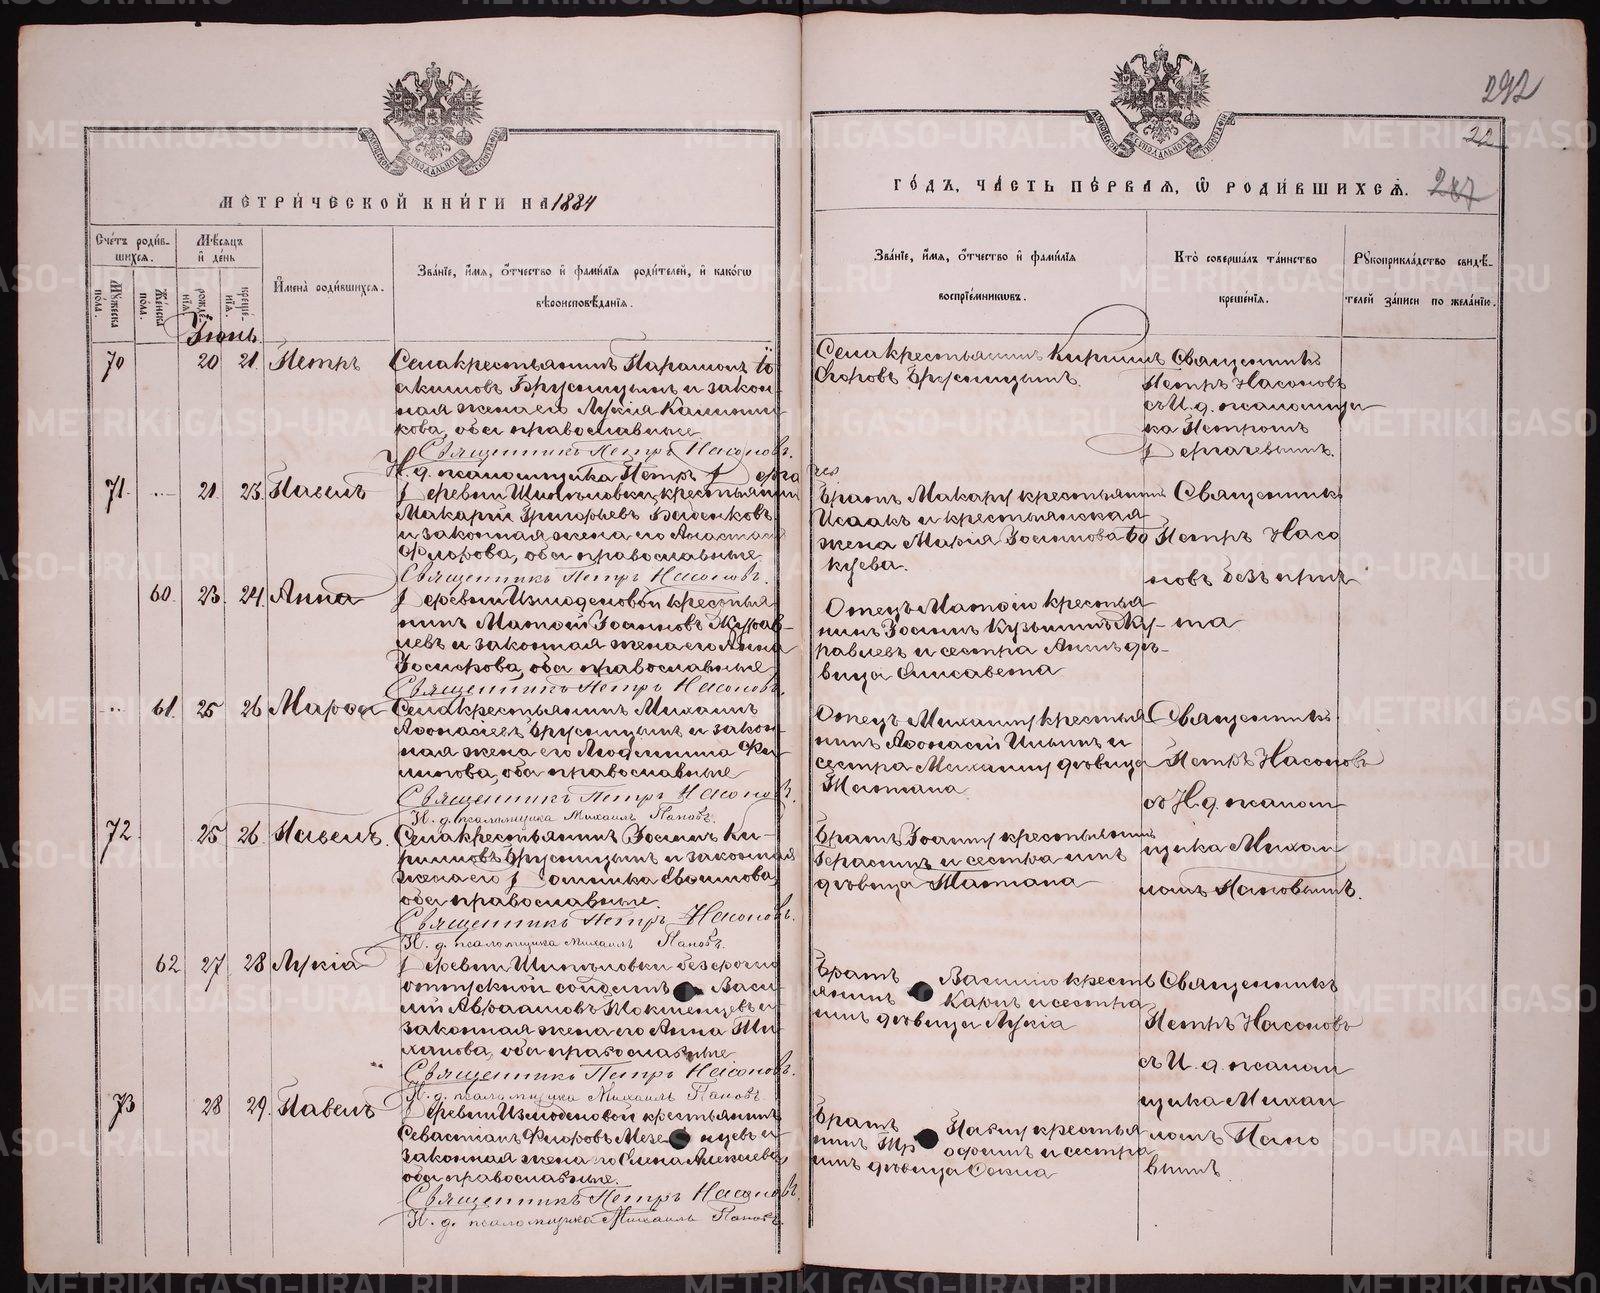 292
22
МЕТРИ́ЧЕСКОЙ КНИ́ГИ НА 1884
ГО́ДЪ, ЧА́СТЬ ПЕ́РВАЯ, Ѡ РОДИ́ВШИХСѦ.
287
Сче́тъ роди́в-
шихсѧ.
Мѣ́сѧцъ
и де́нь
Мꙋ́жеска
по́ла.
Же́нска
по́ла.
рожде́-
нїѧ.
креще́-
нїѧ.
И҆мена̀ роди́вшихсѧ.
Зва́нїе, и҆́мѧ, ѻ҆́тчество и҆ фами́лїѧ роди́телей, и҆ како́гѡ
вѣроисповѣ́данїѧ.
Зва́нїе, и҆́мѧ, ѻ҆́тчество и҆ фами́лїѧ
воспрїе́мникѡвъ.
Кто̀ соверша́лъ та́инство
креще́нїѧ.
Рꙋкоприкла́дство свидѣ́-
телей за́писи по жела́нїю.
Іюнь
70 20 21. Петръ
Села крестьянинъ Парамонъ Іо
акимовъ Брусницынъ и закон-
ная жена его Лукія Калинни-
кова, оба православные
Священникъ Петръ Насоновъ.
И. д. псаломщика Петръ Дерга
чев
Села крестьянинъ Кириллъ
Егоровъ Брусницынъ.
Священникъ
Петръ Насоновъ
съ И. д. псаломщи-
ка Петромъ
Дергачевымъ.
71. 21. 23. Павелъ
Деревни Шипѣловки, крестьянин
Макарій Григорьевъ Бабенковъ
и законная жена его Анастасія
Флорова, оба православные
Священникъ Петръ Насоновъ.
Братъ Макару крестьянинъ
Исаакъ и крестьянская
жена Марія Іосипова Бо
куева.
Священникъ
Петръ Насо
новъ безъ прич
та
60. 23. 24. Анна
Деревни Измоденовой крестья
нинъ Матѳей Іоанновъ Журав-
левъ и законная жена его Анна
оба православные
Священникъ Петръ Насоновъ.
Отецъ Матѳею крестья
нинъ Іоаннъ Кузьминъ Жу-
равлевъ и сестра Аннѣ дѣ-
вица Елисавета
61. 25 26 Марѳа
Села крестьянинъ Михаилъ
Аѳонасіевъ Брусницынъ и закон-
ная жена его Людмилла Фи-
липова, оба православные
Священникъ Петръ Насоновъ.
И. д. псаломщика Михаилъ Пановъ.
Отецъ Михаилу крестья
нинъ Аѳонасій Ильинъ и
сестра Михаилу дѣвица
Татіана
Священникъ
Петръ Насоновъ
съ И. д. псалом
щика Михаи
ломъ Пановымъ.
72 25 26. Павелъ.
Села крестьянинъ Іоаннъ Ки-
рилловъ Брусницынъ и законная
жена его Домника
оба православные.
Священникъ Петръ Насоновъ.
И. д. псаломщика Михаилъ Пановъ.
Братъ Іоанну крестьянинъ
Герасимъ и сестра имъ
дѣвица Татіана
62 27 28 Лукіа
Деревни Шипѣловки безсрочно
отпускной Васи-
лій Авраамовъ Токменцевъ и
законная жена его Анна Ти-
ханова, оба православные
Священникъ Петръ Насоновъ.
И. д. псаломщика Михаилъ Пановъ
Братъ Василію кресть
янинъ Карпъ и сестра
имъ дѣвица Лукіа
Священникъ
Петръ Насоновъ
съ И. д. псалом
щика Михаи
ломъ Пано
вымъ.
73 28 29. Павелъ
Деревни Измоденовой крестьянинъ
Севастіанъ Флоровъ Мезенцевъ и
законная жена его Елена Алексѣева
оба православные.
Священникъ Петръ Насоновъ.
И. д. псаломщика Михаилъ Пановъ.
Братъ Павлу крестья
нинъ Трофимъ и сестра
имъ дѣвица
METRIKI.GASO-URAL.RU